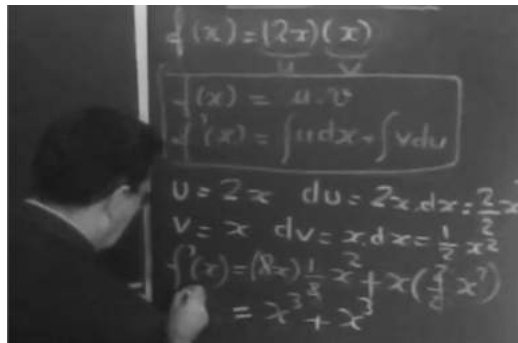 f(x) = (2x)(x)
u v
f(x) = u.v
f'(x) = ∫udx + ∫vdu
u = 2x du = 2x.dx = 2/2 x²
v = x dv = x.dx = 1/2 x²
f'(x) = (8x) 1/2 x² + x(2/2 x²)
= x³ + x³